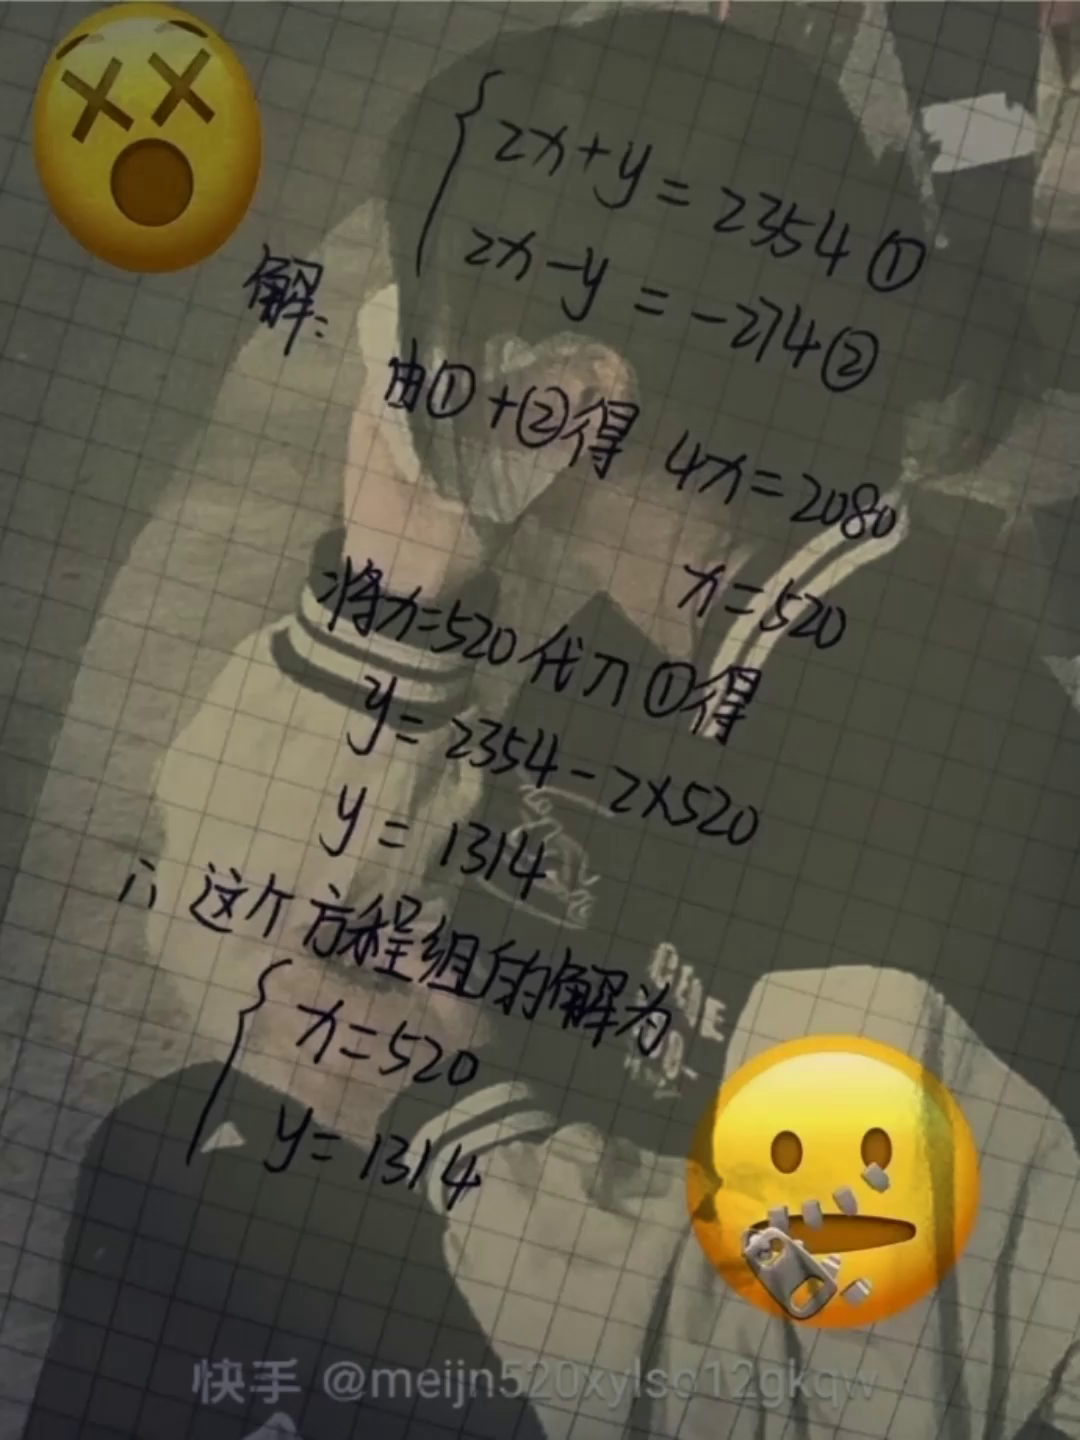 2x+y=2354①
2x-y=-274②
解:
由①+②得 4x=2080
x=520
将x=520代入①得
y=2354-2×520
y=1314
∴这个方程组的解为
x=520
y=1314
快手 @meijn520xylso12gkqw